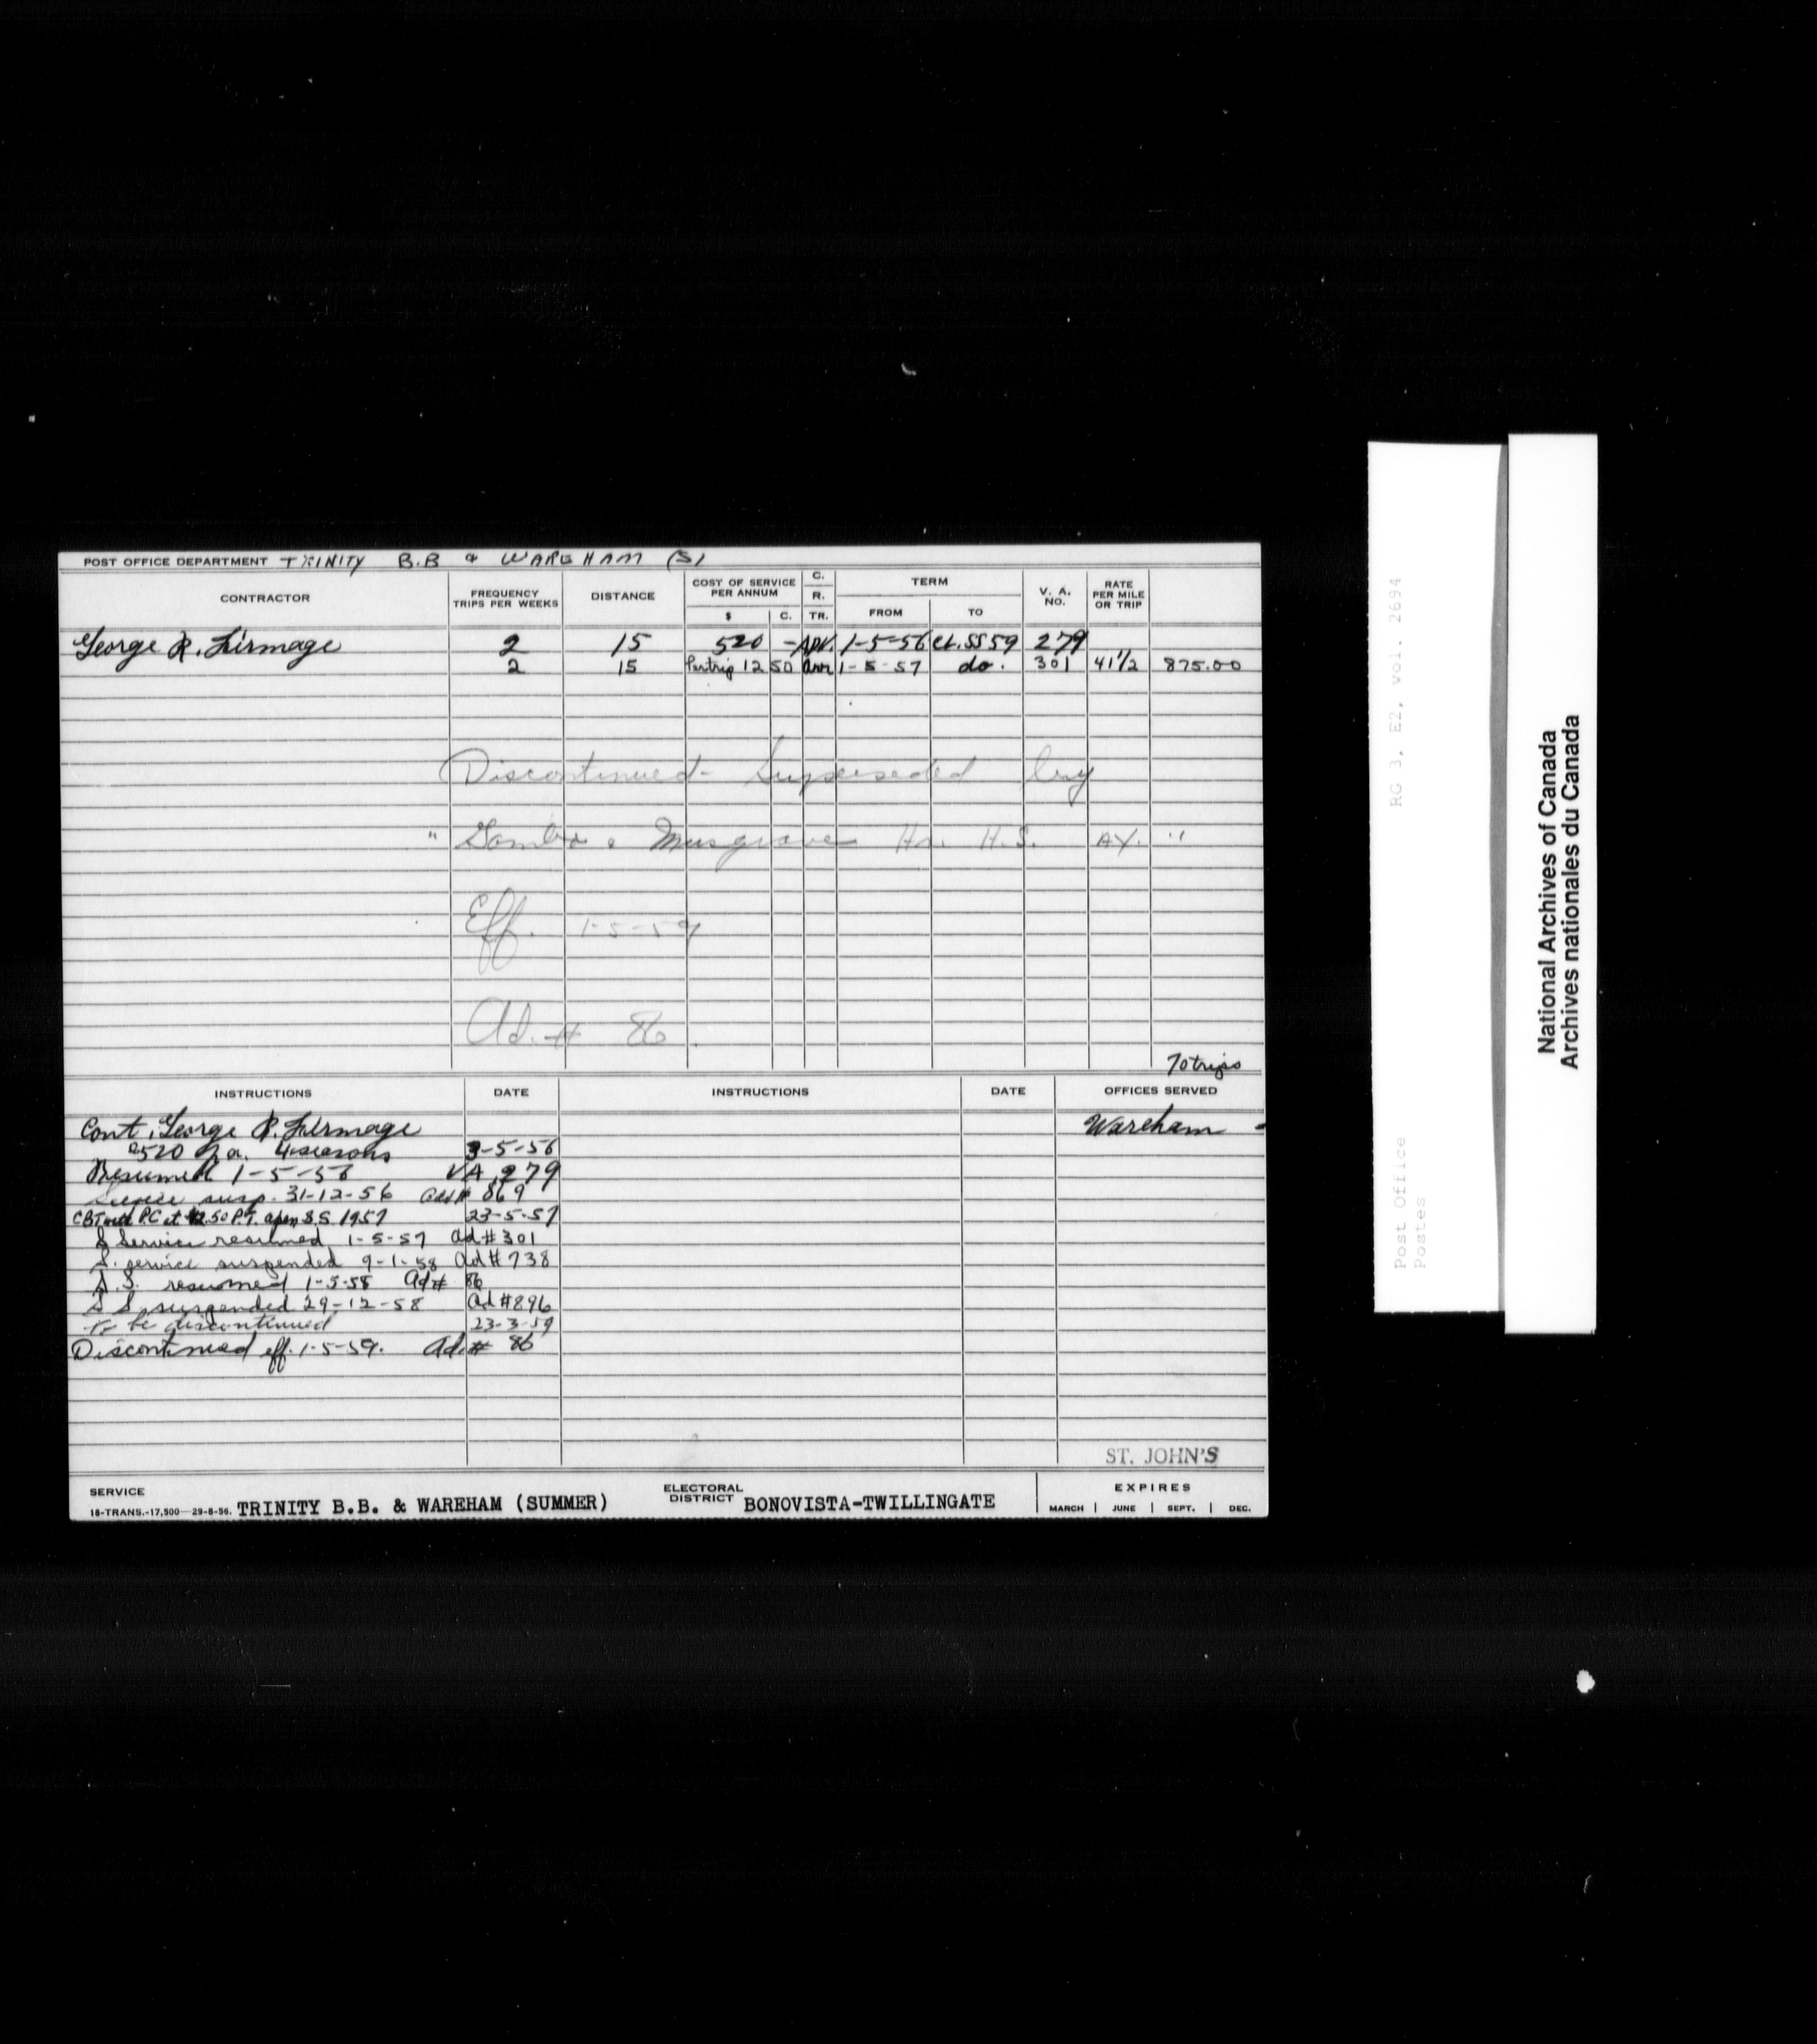 POST OFFICE DEPARTMENT TRINITY B.B & WAREHAM (S)
CONTRACTOR FREQUENCY TRIPS PER WEEKS DISTANCE COST OF SERVICE PER ANNUM $ C. C. R. TR. TERM FROM TO V. A. NO. RATE PER MILE OR TRIP
George R. Firmage 2 15 520 - ADV. 1-5-56 CL.SS 59 279
2 15 Per trip 12 50 1-5-57 do. 301 41 1/2 875.00
Discontinued - Superseded by
" Gambo & Musgrave Hr. H.S. AY. "
Eff. 1-5-59
Ad. # 86
70 trips
INSTRUCTIONS DATE INSTRUCTIONS DATE OFFICES SERVED
Cont. George R. Firmage Wareham
@520 p.a. 4 seasons 3-5-56
Resumed 1-5-56 VA 279
Service susp. 31-12-56 Ad # 869
P.C. at $12.50 P.T. S.S. 1957 23-5-57
S Service resumed 1-5-57 Ad # 301
S. service suspended 9-1-58 Ad # 738
S.S. resumed 1-5-58 Ad # 86
S S. suspended 29-12-58 Ad # 896
To be discontinued 23-3-59
Discontinued eff. 1-5-59. Ad. # 86
ST. JOHN'S
SERVICE TRINITY B.B. & WAREHAM (SUMMER) ELECTORAL DISTRICT BONOVISTA-TWILLINGATE EXPIRES
18-TRANS.-17,500—29-8-56. MARCH | JUNE | SEPT. | DEC.
RG 3, E2, vol. 2694
Post Office
Postes
National Archives of Canada
Archives nationales du Canada